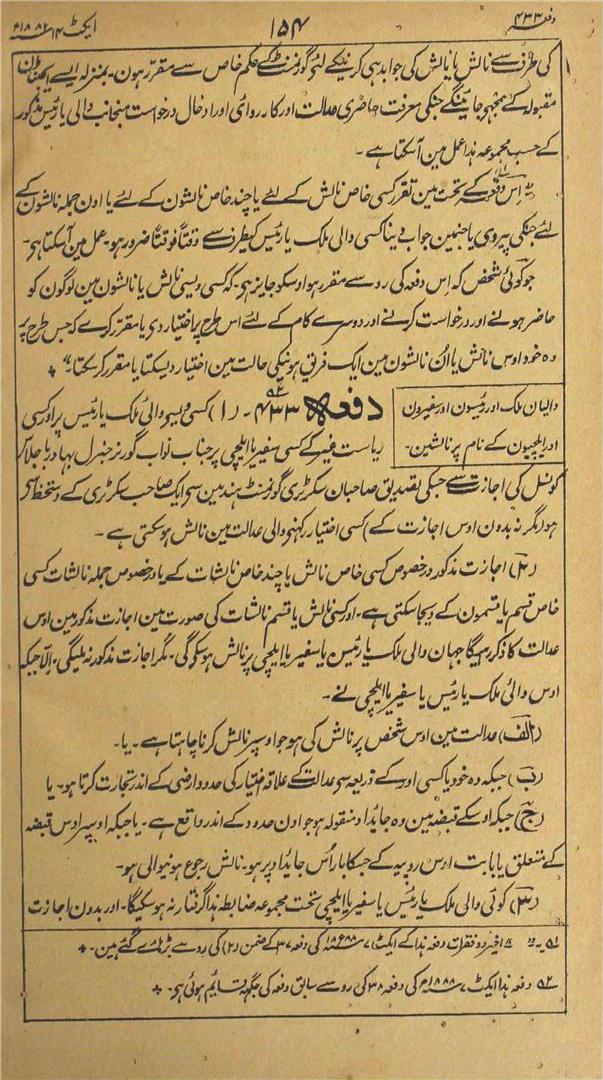 دفعہ ۴۳۳
۱۵۴
ایکٹ ۱۴ ۱۸۸۲ء
کی طرف سے نالش یا نالش کی جوابدہی کرینگے لئے گورنمنٹ کے حکم خاص سے مقرر ہون۔ بمنزلہ ایسے ایجنٹان
مقبولہ کے سمجھے جائینگے جنکی معرفت حاضری عدالت اور کارروائی اور ادخال درخواست منجانب والی یا رئیس مذکور
کے حسب مجموعہ ہذا عمل مین آسکتا ہے۔
اس دفعہ کے تحت مین تقرر کسی خاص نالش کے لئے یا چند خاص نالشون کے لئے یا اون جملہ نالشون کے
لئے جنکی پیروی یا جنمین جواب دینا کسی والی ملک یا رئیس کیطرف سے وقتاً فوقتاً ضرور ہو۔ عمل مین آسکتا ہے۔
جو کوئی شخص کہ اس دفعہ کی رو سے مقرر ہو اوسکو جایز ہے۔ کہ کسی ویسی نالش یا نالشون مین لوگون کو
حاضر ہونے اور درخواست کرنے اور دوسرے کام کے لئے اس طرح پر اختیار دی یا مقرر کرے کہ جس طرح پر
وہ خود اوس نالش یا ان نالشون مین ایک فریق ہونیکی حالت مین اختیار دیسکتا یا مقرر کرسکتا۔"
والیان ملک اور رئیسون اور سفیرون
اور ایلچیون کے نام پر نالشین۔
دفعہ ۴۳۳۔ (۱) کسی دیسی والی ملک یا رئیس پر اور کسی
ریاست غیر کے کسی سفیر یا ایلچی پر جناب نواب گورنر جنرل بہادر باجلاس
کونسل کی اجازت سے جسکی تصدیق صاحبان سکرٹری گورنمنٹ ہند مین سے ایک صاحب سکرٹری کے دستخط سے
ہو (مگر نہ بدون اوس اجازت کے) کسی اختیار رکھنے والی عدالت مین نالش ہوسکتی ہے۔
(۲) اجازت مذکور درخصوص کسی خاص نالش یا چند خاص نالشات کے یا درخصوص جملہ نالشات کسی
خاص قسم یا قسمون کے دیجاسکتی ہے۔ اور کسی نالش یا قسم نالشات کی صورت مین اجازت مذکور مین اوس
عدالت کا ذکر رہیگا جہان والی ملک یا رئیس یا سفیر یا ایلچی پر نالش ہوسکے گی۔ مگر اجازت مذکور نہ ملیگی۔ اِلّا جبکہ
اوس والی ملک یا رئیس یا سفیر یا ایلچی نے۔
(الف) عدالت مین اوس شخص پر نالش کی ہو جو اوسپر نالش کرنا چاہتا ہے۔ یا۔
(ب) جبکہ وہ خود یا کسی اور کے ذریعہ سے عدالت کے علاقہ اختیار کی حدود ارضی کے اندر تجارت کرتا ہو۔ یا
(ج) جبکہ اوسکے قبضہ مین وہ جائداد منقولہ ہو جو اون حدود کے اندر واقع ہے۔ یا جبکہ اوسپر اوس قبضہ
کے متعلق یا بابت اوس روپیہ کے جسکا بار اُس جائداد پر ہو۔ نالش رجوع ہونیوالی ہو۔
(۳) کوئی والی ملک یا رئیس یا سفیر یا ایلچی تحت مجموعہ ضابطہ ہذا گرفتار نہ ہوسکیگا۔ اور بدون اجازت
۵۱ یہ اخیر دو فقرات دفعہ ہذا کے ایکٹ ۷ ۱۸۸۸ء کی دفعہ ۳۷ کے ضمن (۲) کی رو سے بڑھائے گئے ہین۔
۵۲ دفعہ ہذا ایکٹ ۷ ۱۸۸۸ء کی دفعہ ۳۸ کی رو سے سابق دفعہ کی جگہہ قایم ہوئی ہے۔